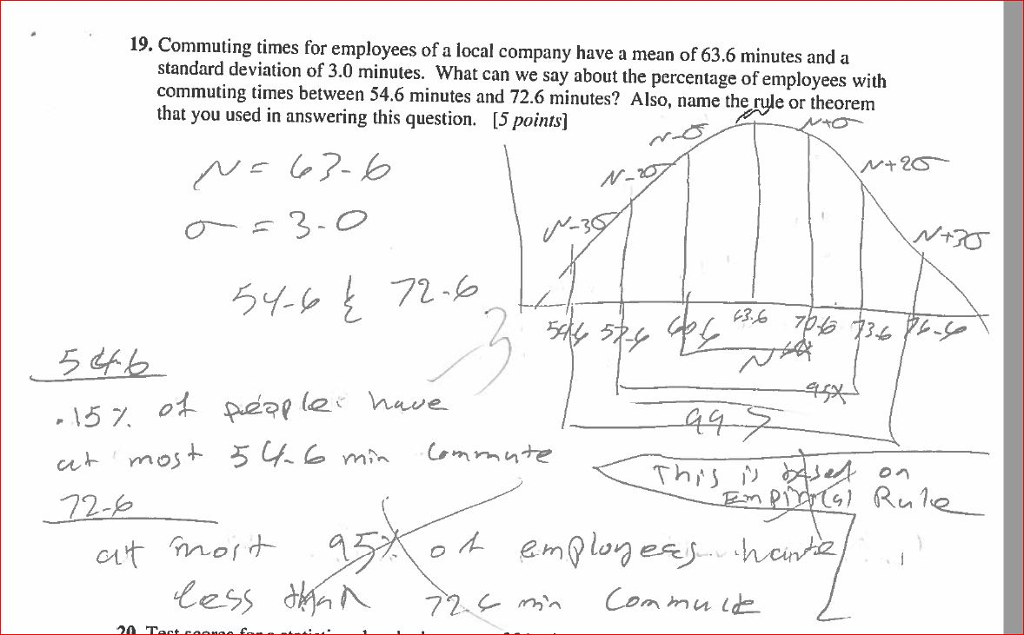 19. Commuting times for employees of a local company have a mean of 63.6 minutes and a
standard deviation of 3.0 minutes. What can we say about the percentage of employees with
commuting times between 54.6 minutes and 72.6 minutes? Also, name the rule or theorem
that you used in answering this question. [5 points]
μ-σ
μ
μ+σ
μ-2σ
μ+2σ
μ-3σ
μ+3σ
μ = 63.6
σ = 3.0
54.6 & 72.6
54.6 57.6 60.6 63.6 70.6 73.6 76.6
3
68%
95%
99.7
54.6
.15% of people have
at most 54.6 min commute
This is based on
Empirical Rule
72.6
at most 95% of employees have
less than 72.6 min commute